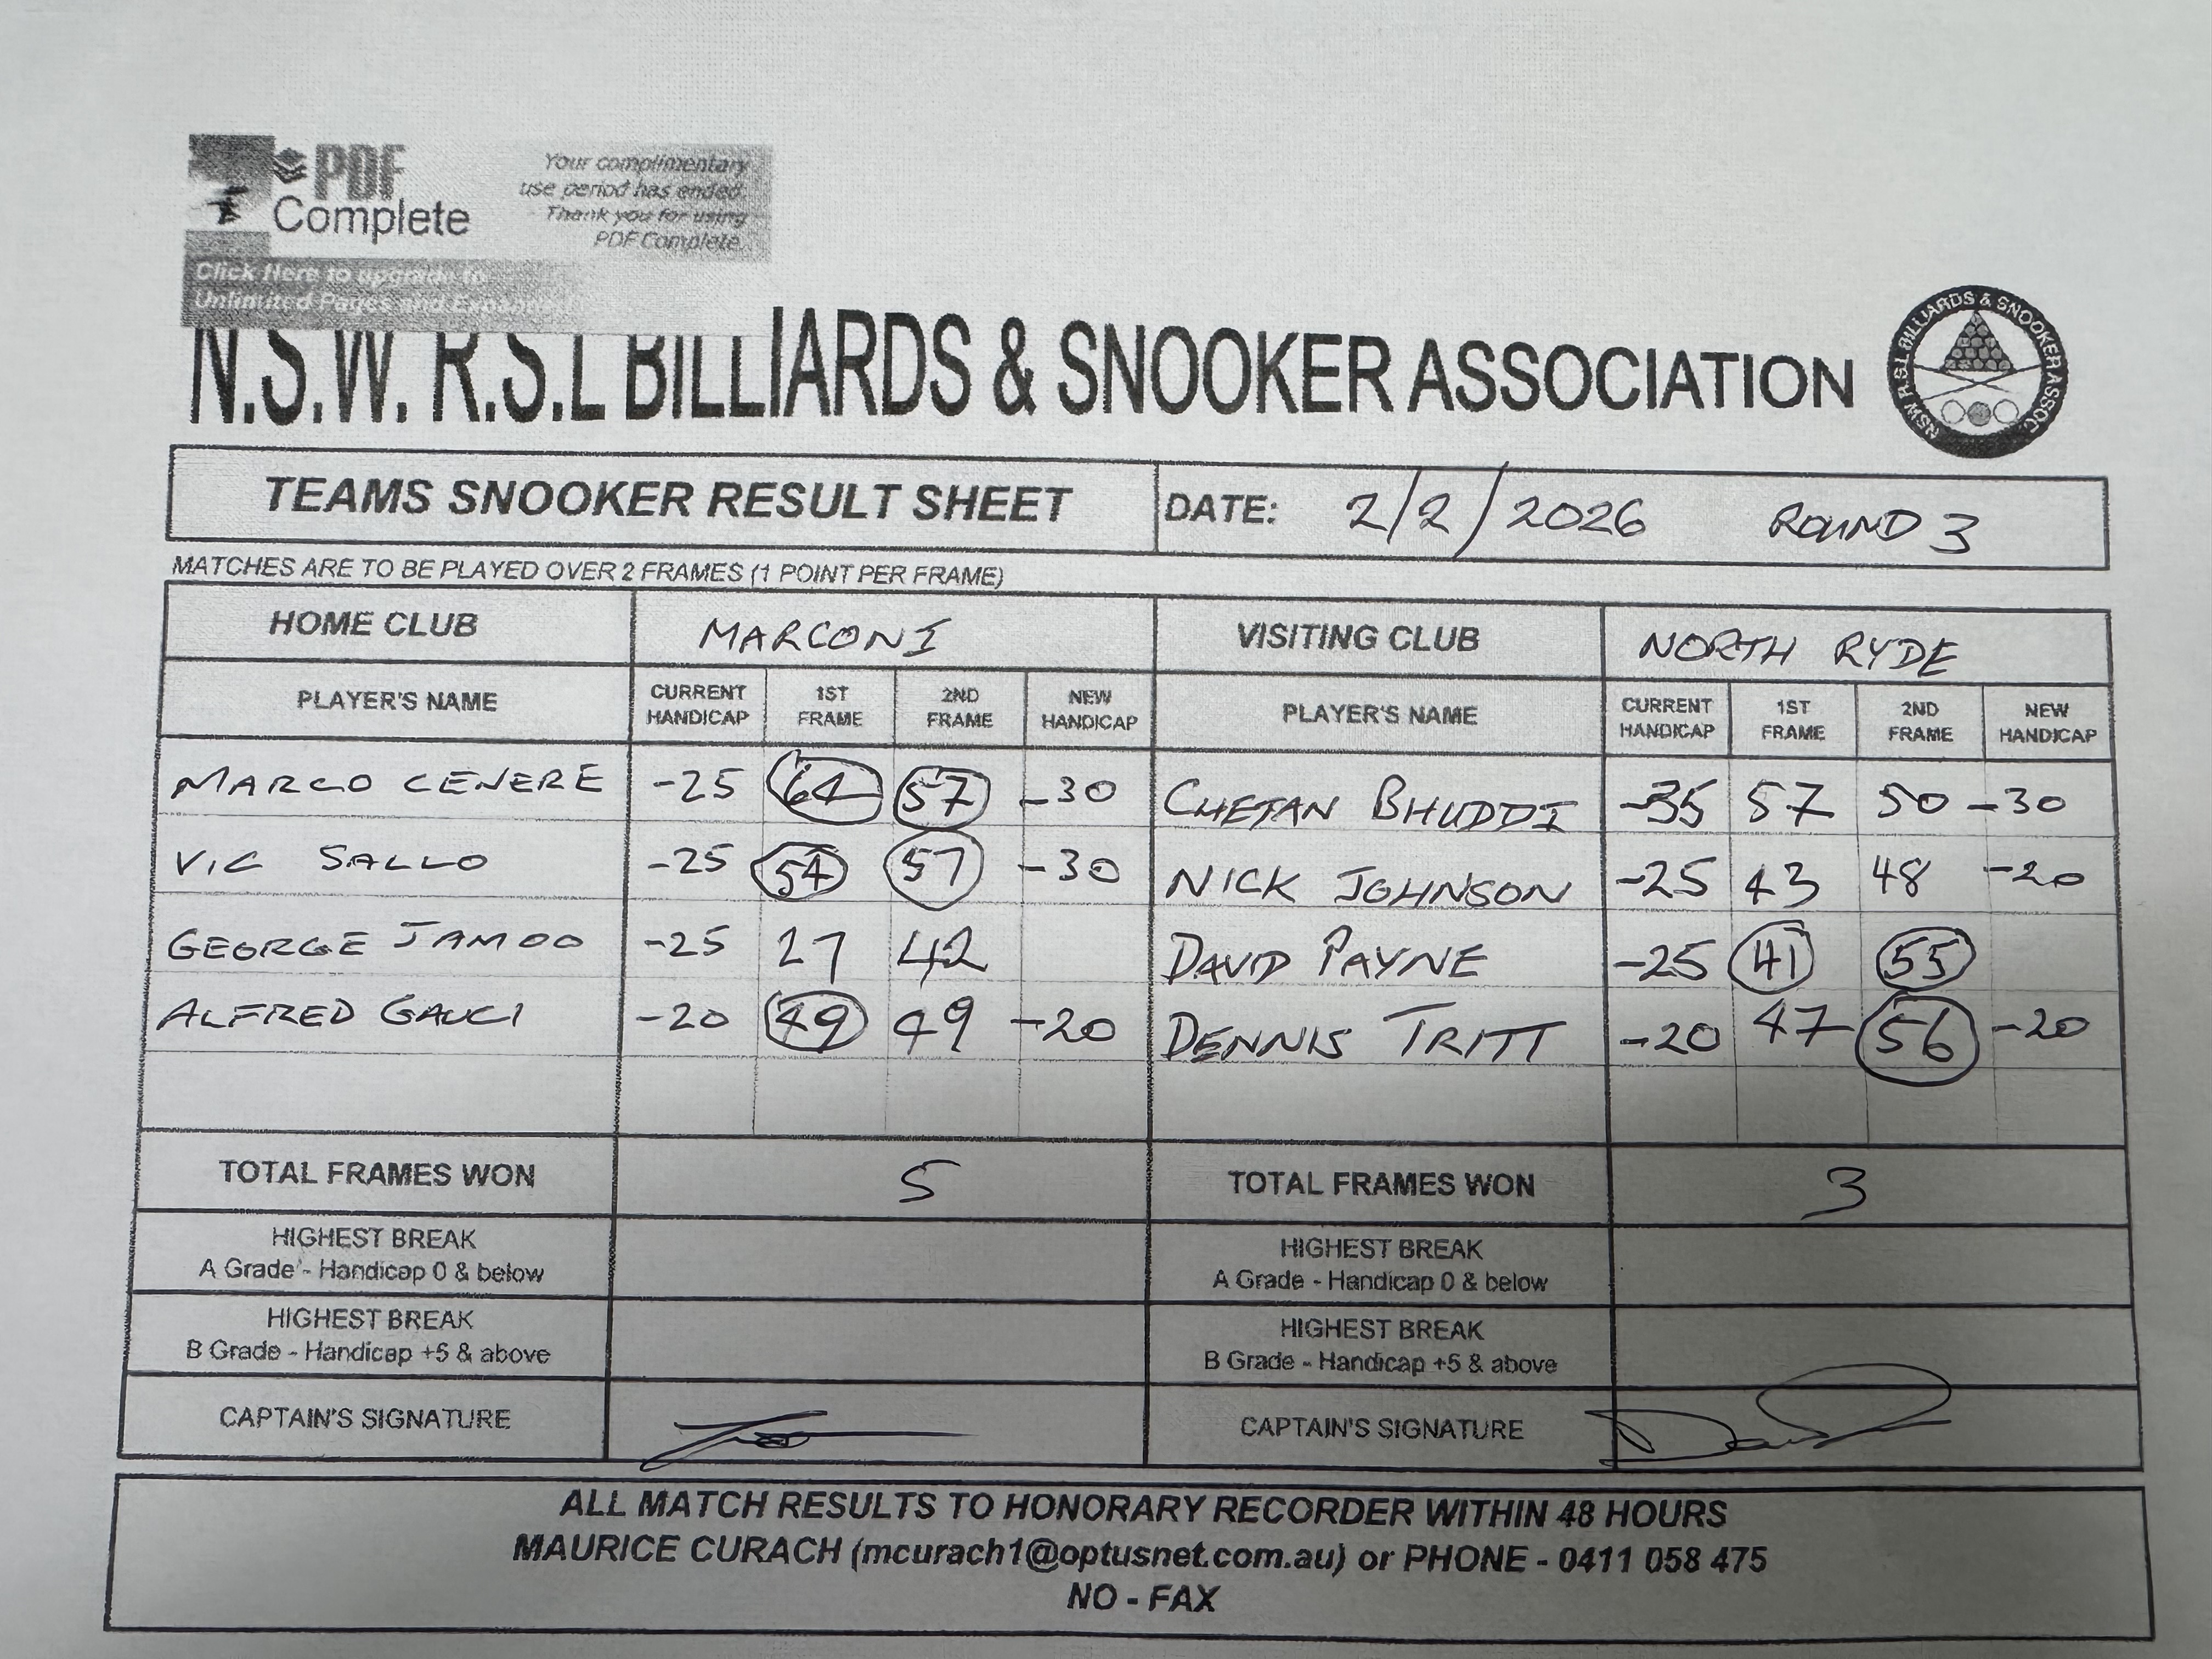 PDF
Complete
Your complimentary
use period has ended.
Thank you for using
PDF Complete.
Click Here to upgrade to
Unlimited Pages and Expanded
N.S.W. R.S.L BILLIARDS & SNOOKER ASSOCIATION
NSW R.S.L BILLIARDS & SNOOKER ASSOC.
TEAMS SNOOKER RESULT SHEET DATE: 2/2/2026 ROUND 3
MATCHES ARE TO BE PLAYED OVER 2 FRAMES (1 POINT PER FRAME)
HOME CLUB MARCONI VISITING CLUB NORTH RYDE
PLAYER'S NAME CURRENT HANDICAP 1ST FRAME 2ND FRAME NEW HANDICAP PLAYER'S NAME CURRENT HANDICAP 1ST FRAME 2ND FRAME NEW HANDICAP
MARCO CENERE -25 64 57 -30 CHETAN BHUDDI -35 57 50 -30
VIC SALLO -25 54 57 -30 NICK JOHNSON -25 43 48 -20
GEORGE JAMOO -25 27 42 DAVID PAYNE -25 41 55
ALFRED GAUCI -20 49 49 -20 DENNIS TRITT -20 47 56 -20
TOTAL FRAMES WON 5 TOTAL FRAMES WON 3
HIGHEST BREAK HIGHEST BREAK
A Grade - Handicap 0 & below A Grade - Handicap 0 & below
HIGHEST BREAK HIGHEST BREAK
B Grade - Handicap +5 & above B Grade - Handicap +5 & above
CAPTAIN'S SIGNATURE CAPTAIN'S SIGNATURE
ALL MATCH RESULTS TO HONORARY RECORDER WITHIN 48 HOURS
MAURICE CURACH (mcurach1@optusnet.com.au) or PHONE - 0411 058 475
NO - FAX